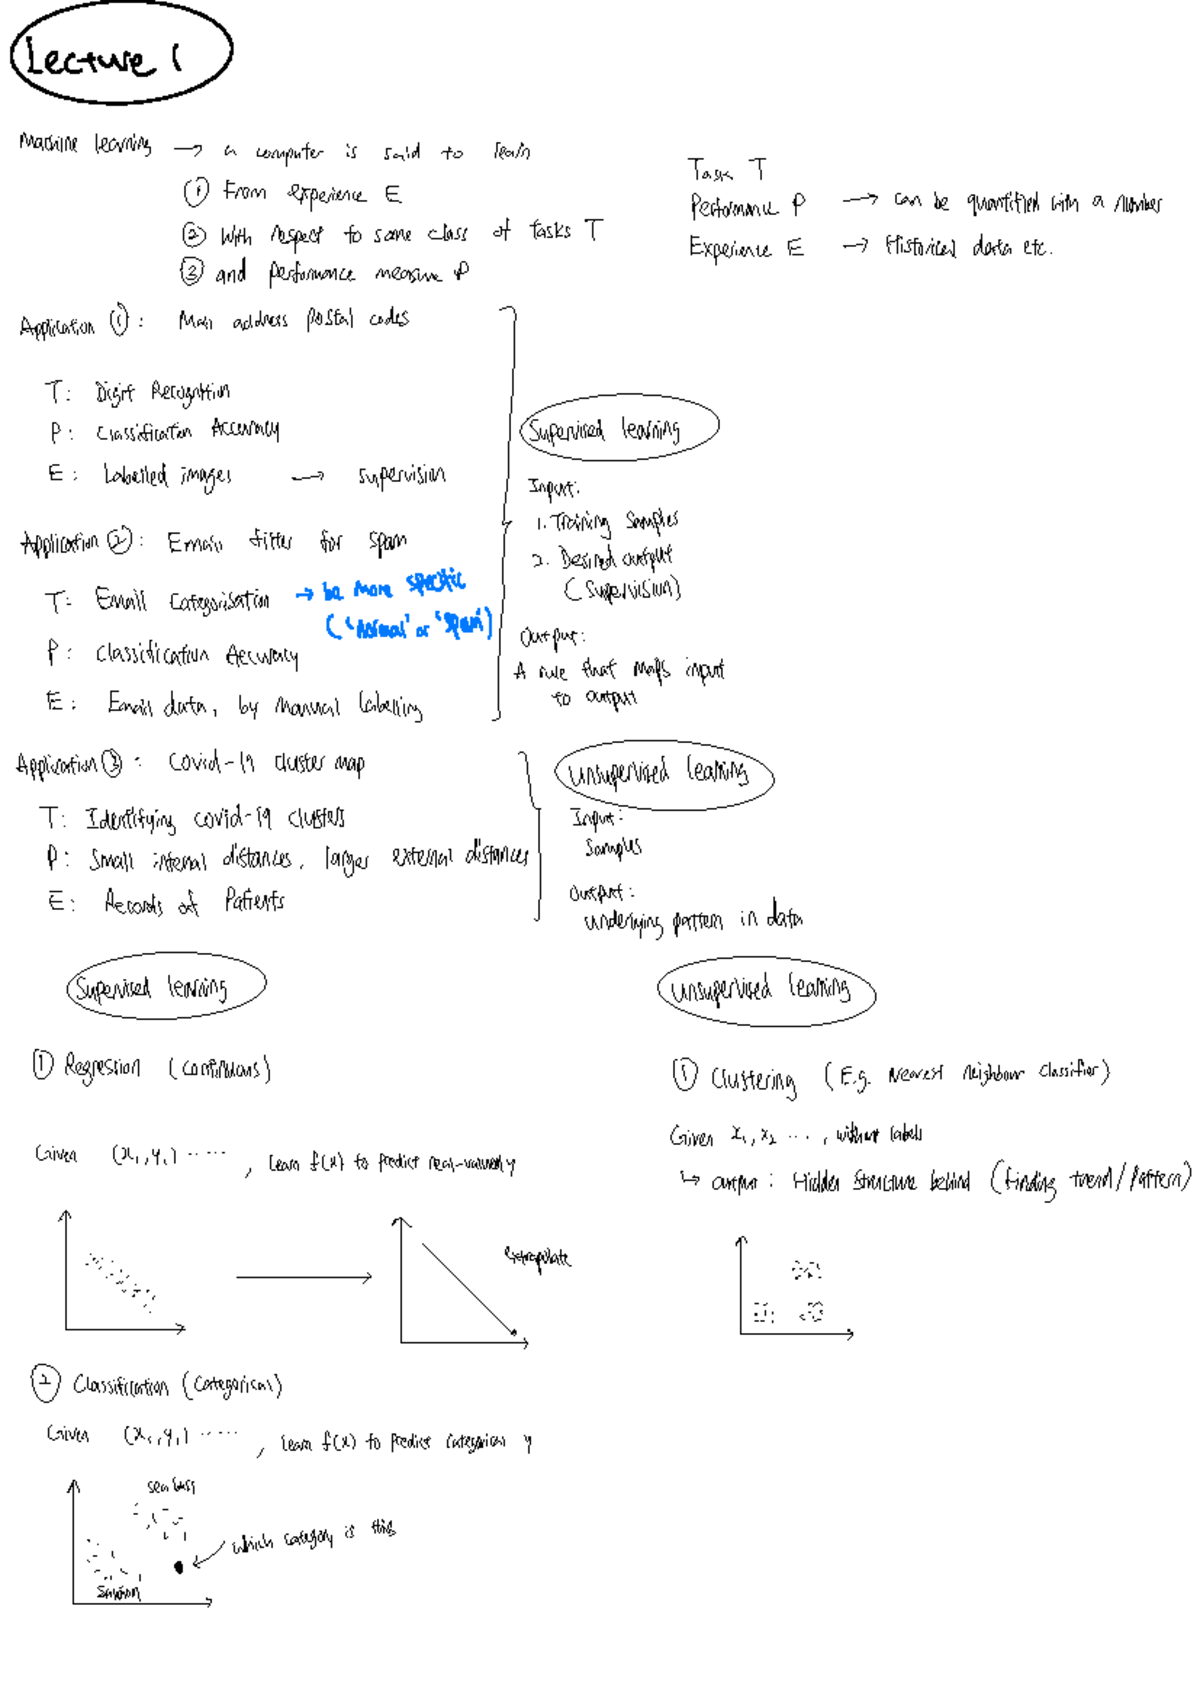 Lecture 1
Machine learning → a computer is said to learn
① From experience E
② With respect to some class of tasks T
③ and performance measure P
Task T
Performance P → can be quantified with a number
Experience E → Historical data etc.
Application ①: Mail address postal codes
T: Digit Recognition
P: Classification Accuracy
E: Labelled images → supervision
Application ②: Email filter for spam
T: Email Categorisation → be more specific
('Normal' or 'Spam')
P: Classification Accuracy
E: Email data, by manual labelling
Supervised learning
Input:
1. Training Samples
2. Desired output
(Supervision)
Output:
A rule that maps input
to output
Application ③: Covid-19 cluster map
T: Identifying covid-19 clusters
P: Small internal distances, larger external distances
E: Records of Patients
Unsupervised learning
Input:
Samples
Output:
underlying pattern in data
Supervised learning
① Regression (continuous)
Given (x₁,y₁) ····· , learn f(x) to predict real-valued y
extrapolate
② Classification (Categorical)
Given (x₁,y₁) ····· , learn f(x) to predict categorical y
sea bass
Salmon
which category is this
Unsupervised learning
① Clustering (E.g. Nearest neighbour classifier)
Given x₁, x₂ ··· , without labels
↳ output: Hidden Structure behind (finding trend/Pattern)